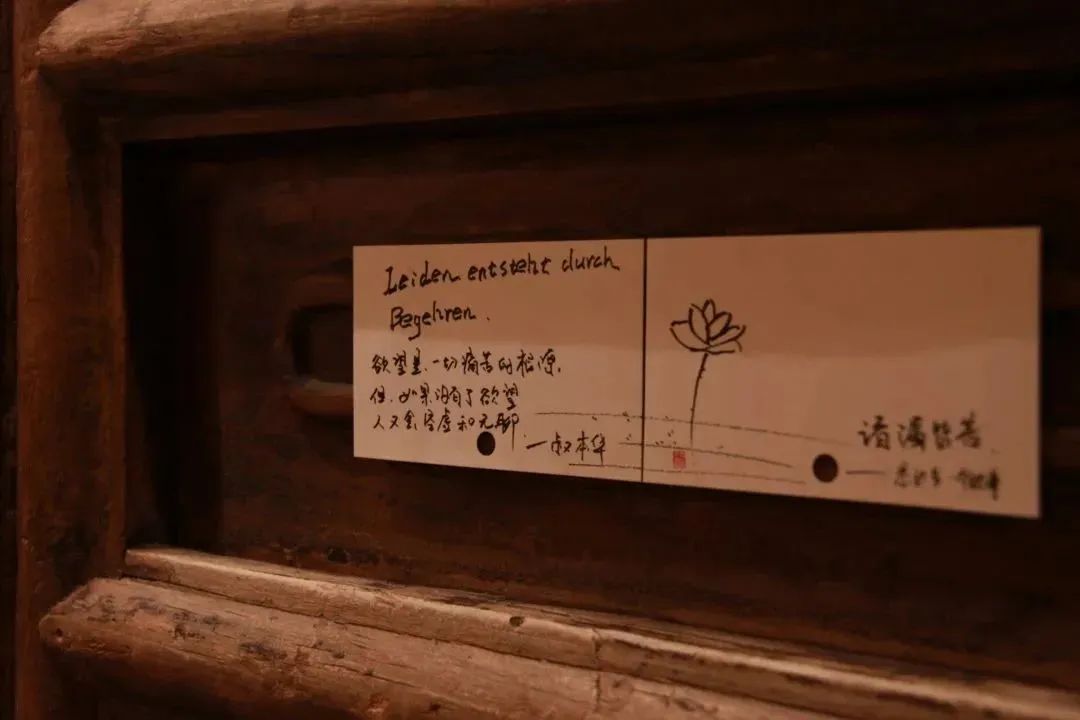 Leiden entsteht durch
Begehren.
欲望是一切痛苦的根源,
但,如果没有了欲望
人又会空虚和无聊
—叔本华
诸漏皆苦